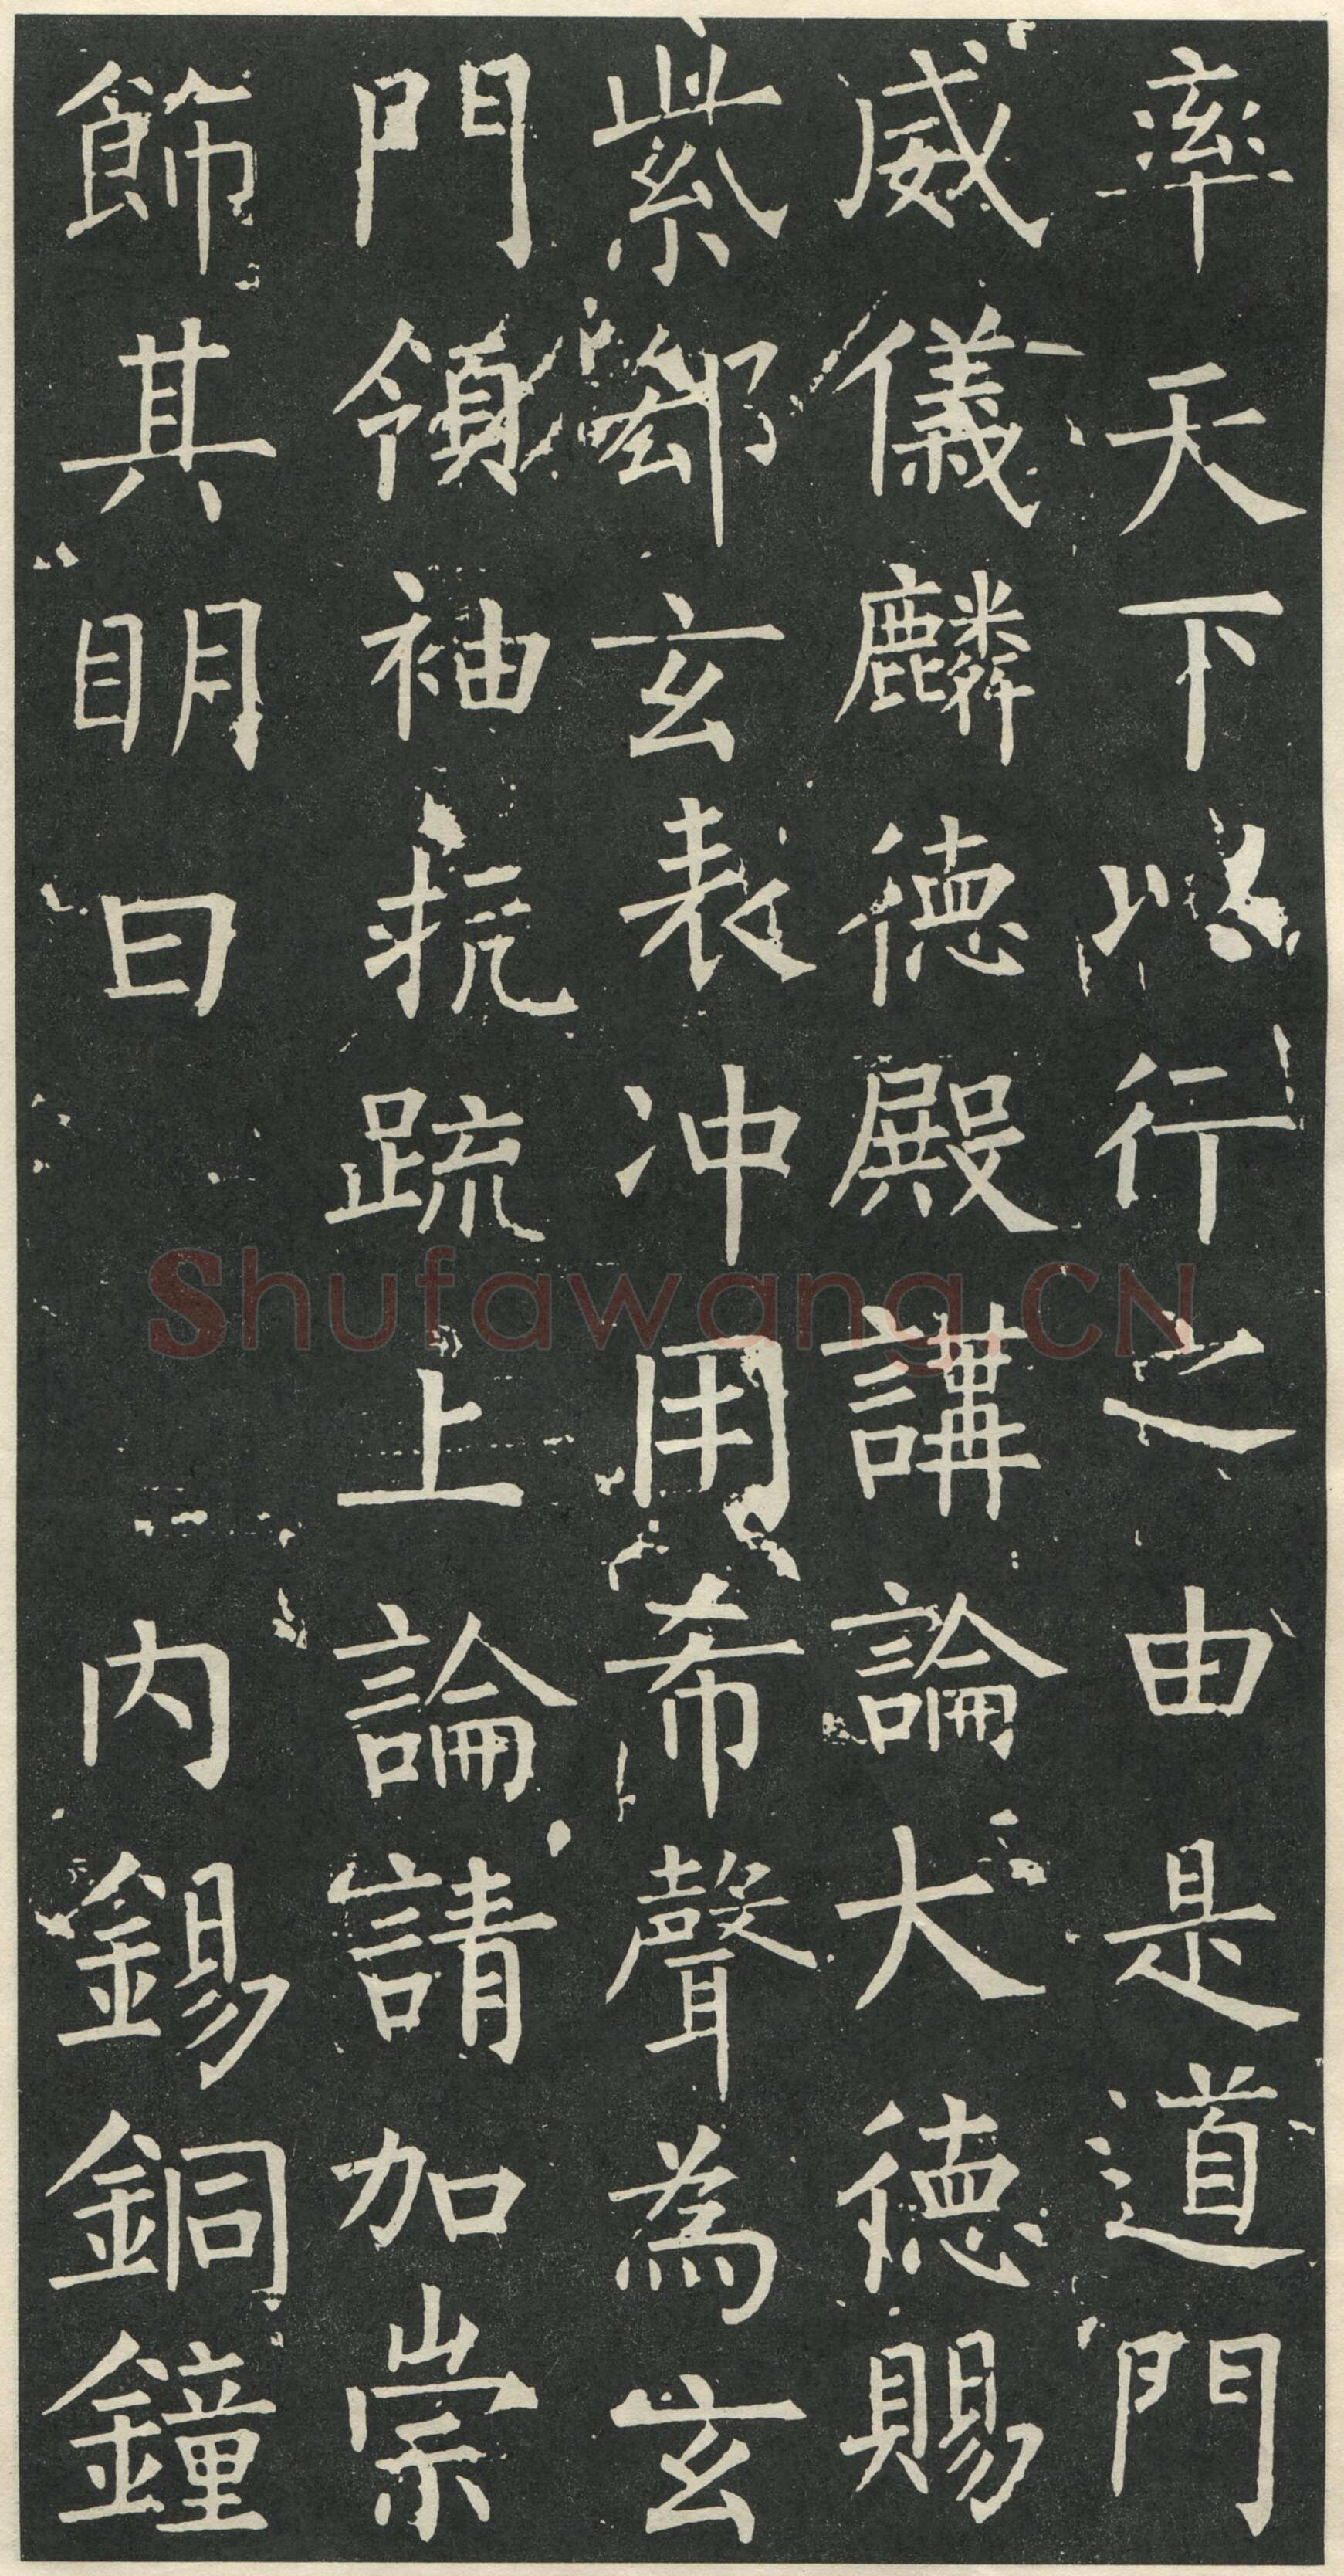 率天下以行之由是道門
威儀麟德殿講論大德賜
紫郄玄表冲用希聲為玄
門領袖抗疏上論請加崇
飾其明曰内錫銅鐘
Shufawang.CN